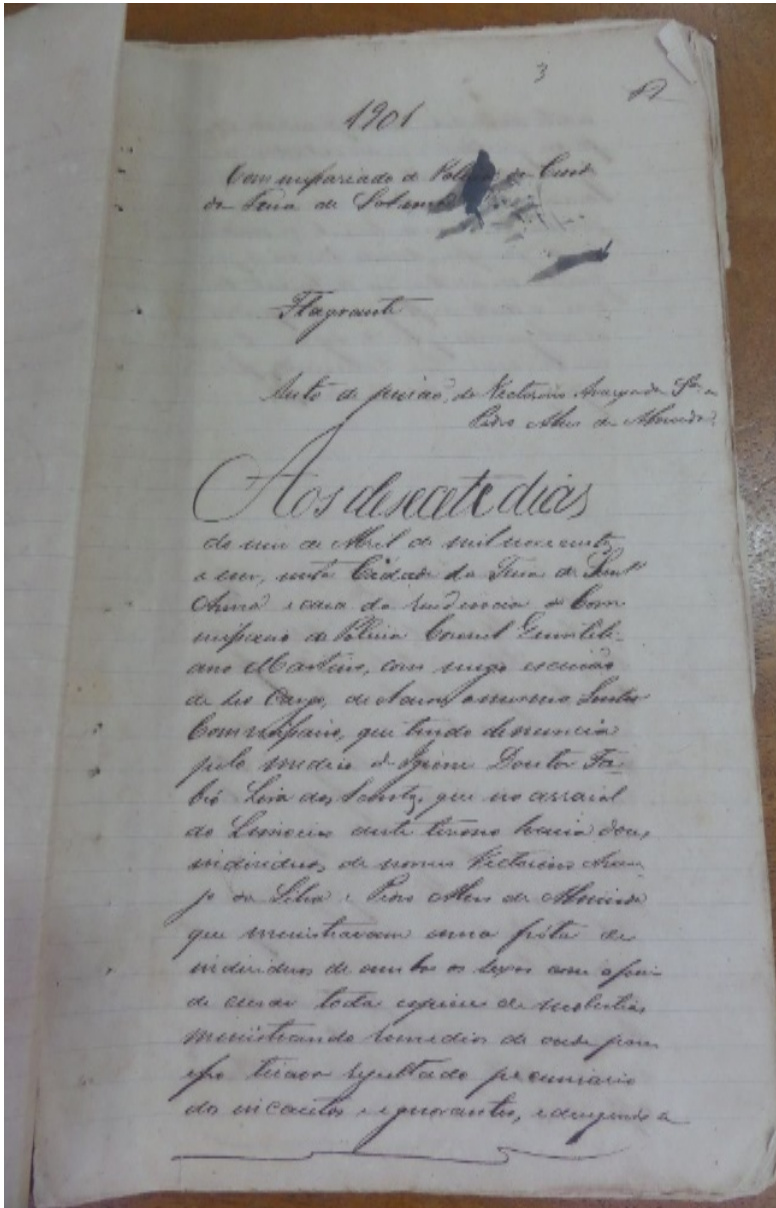 3
1901
Commissariado de Policia da Cid.
da Feira de
Flagrante
Auto de prisão, de Victorino Araujo da Sa. e
Pedro Alves de Almeida.
Aos desecete dias
do mez de Abril de mil novecentos
e um, nesta Cidade da Feira de Sant'
Anna e casa da residencia do Com
missario de Policia Coronel
ano Martins, com migo escrivão
de seo Cargo, de
Commissario, que tendo denuncia
pelo medico d Doutor Fa
bio Lira dos Santos, que no arraial
do Limoeiro deste termo havia dous
individuos, de nomes Victorino Arau
jo da Silva e Pedro Alves de Almeida
que ministravam uma
individuos de ambos os sexos com o fim
de curar toda especie de molestias
ministrando remedios de onde para
isso tiravão resultado pecuniario
dos incautos e ignorantes, e